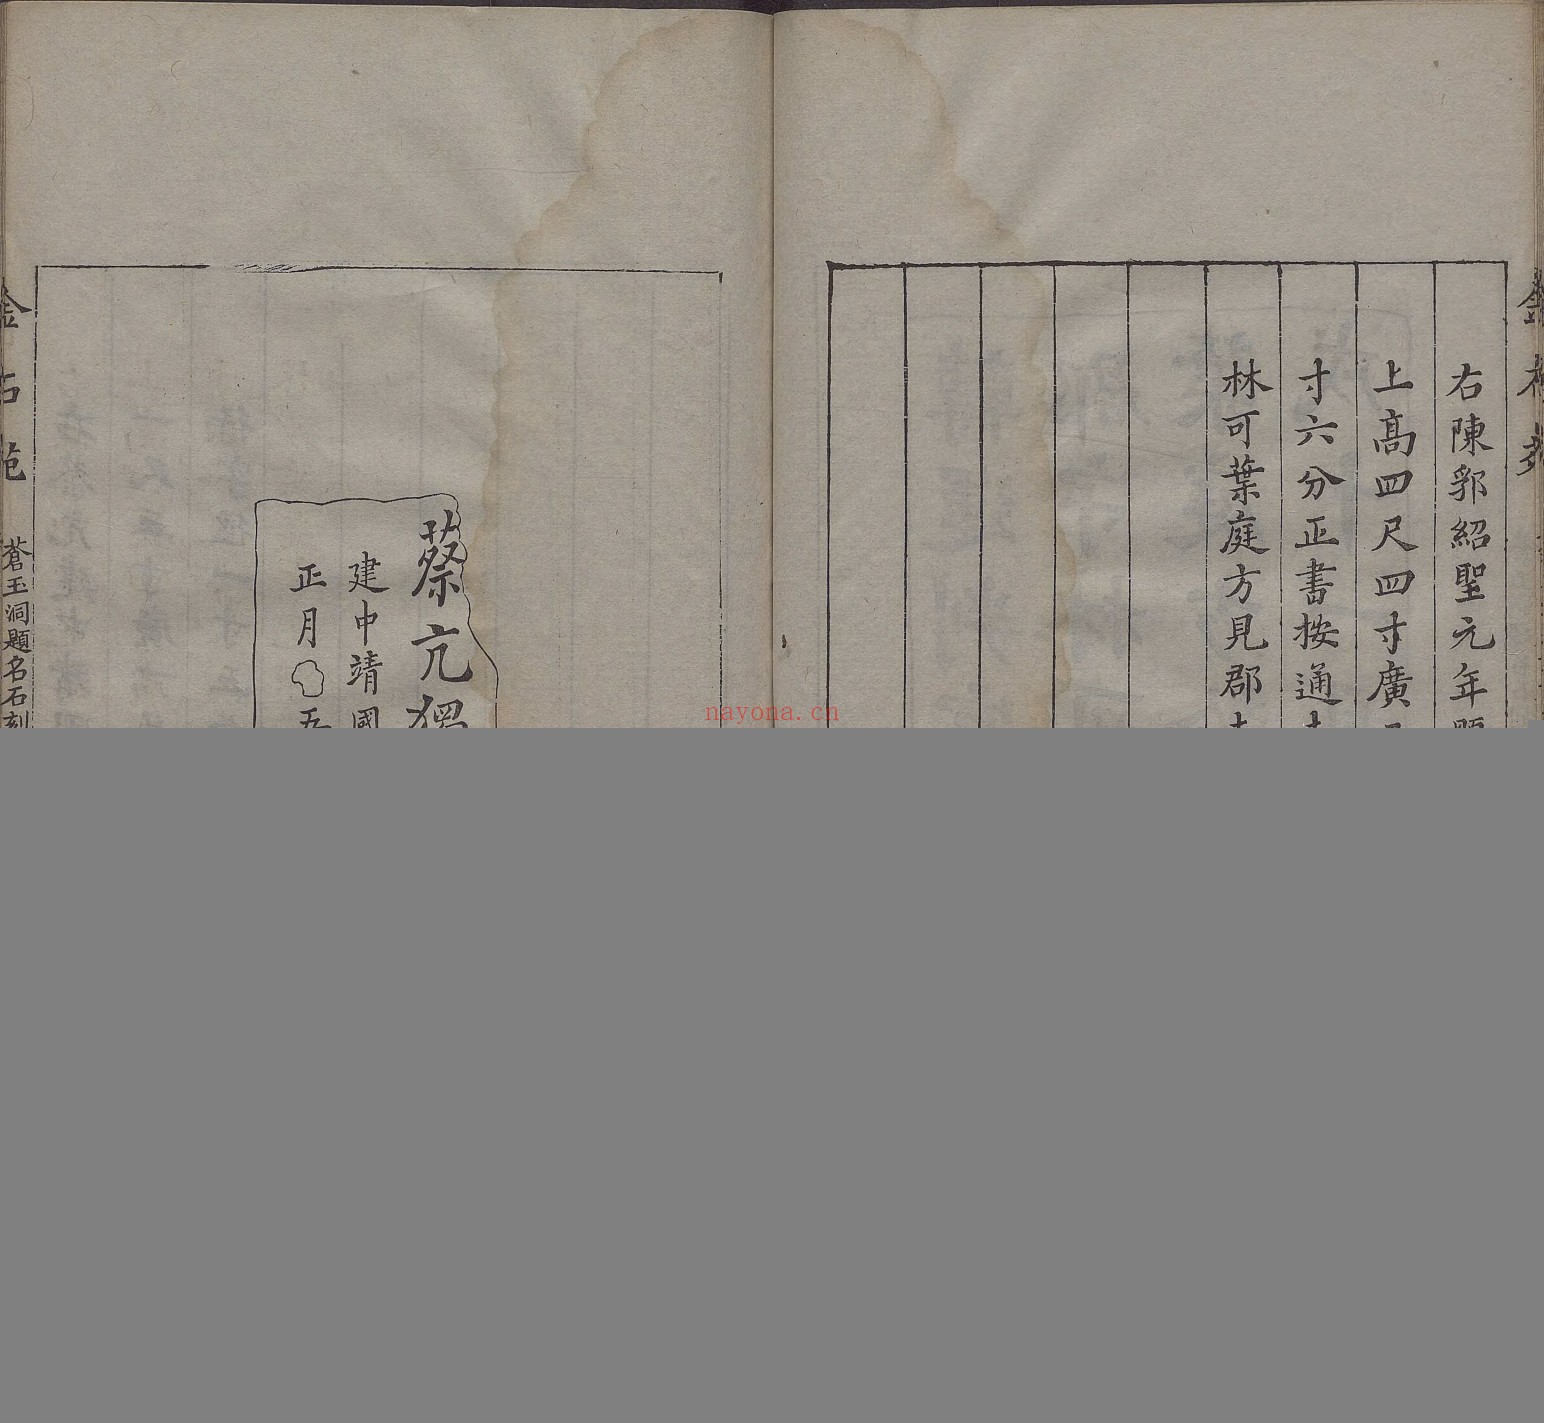 右陳郛紹聖元年
上高四尺四寸廣
寸六分正書按通
林可葉庭方見郡
蔡亢
建中靖國
正月 五
蒼玉洞題名石刻
金石苑
nayona.cn